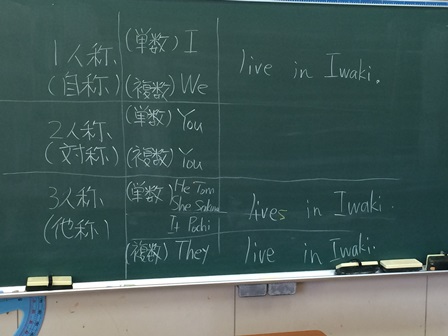 1人称 (単数) I
(自称) (複数) We
live in Iwaki.
2人称 (単数) You
(対称) (複数) You
3人称 (単数) He Tom
She Sakura
It Pochi
lives in Iwaki.
(他称)
(複数) They live in Iwaki.